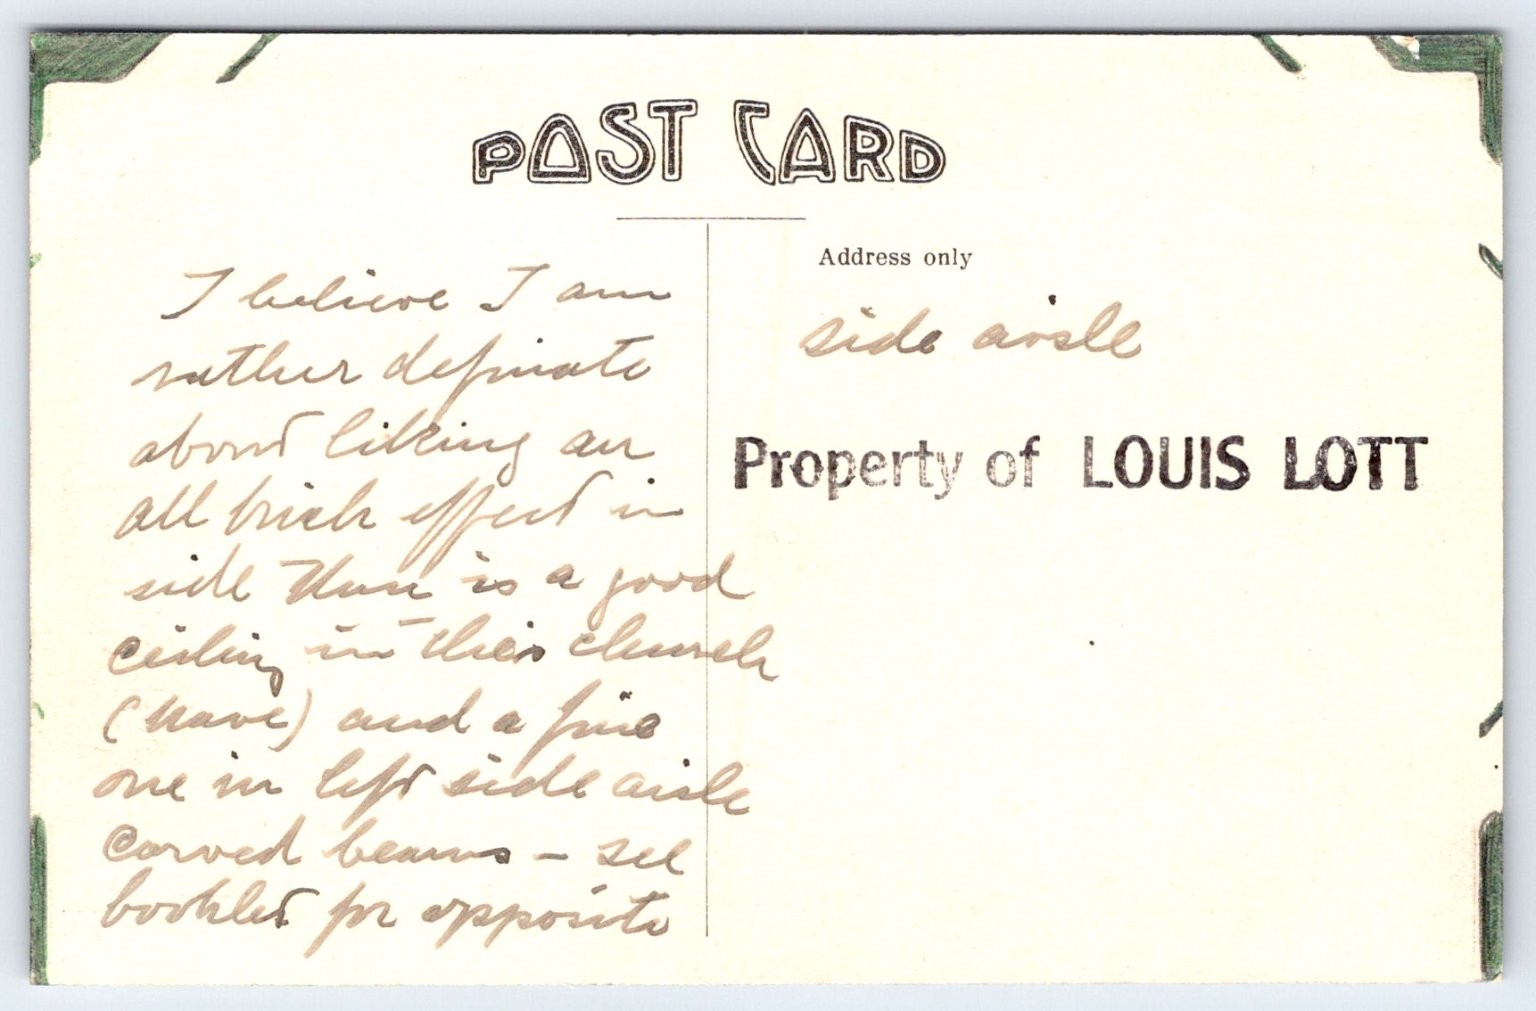 POST CARD
Address only
I believe I am
rather definate
about liking an
all brick effect in
side There is a good
ceiling in this church
(Nave) and a fine
one in left side aisle
carved beams - see
booklet for opposite
side aisle
Property of LOUIS LOTT